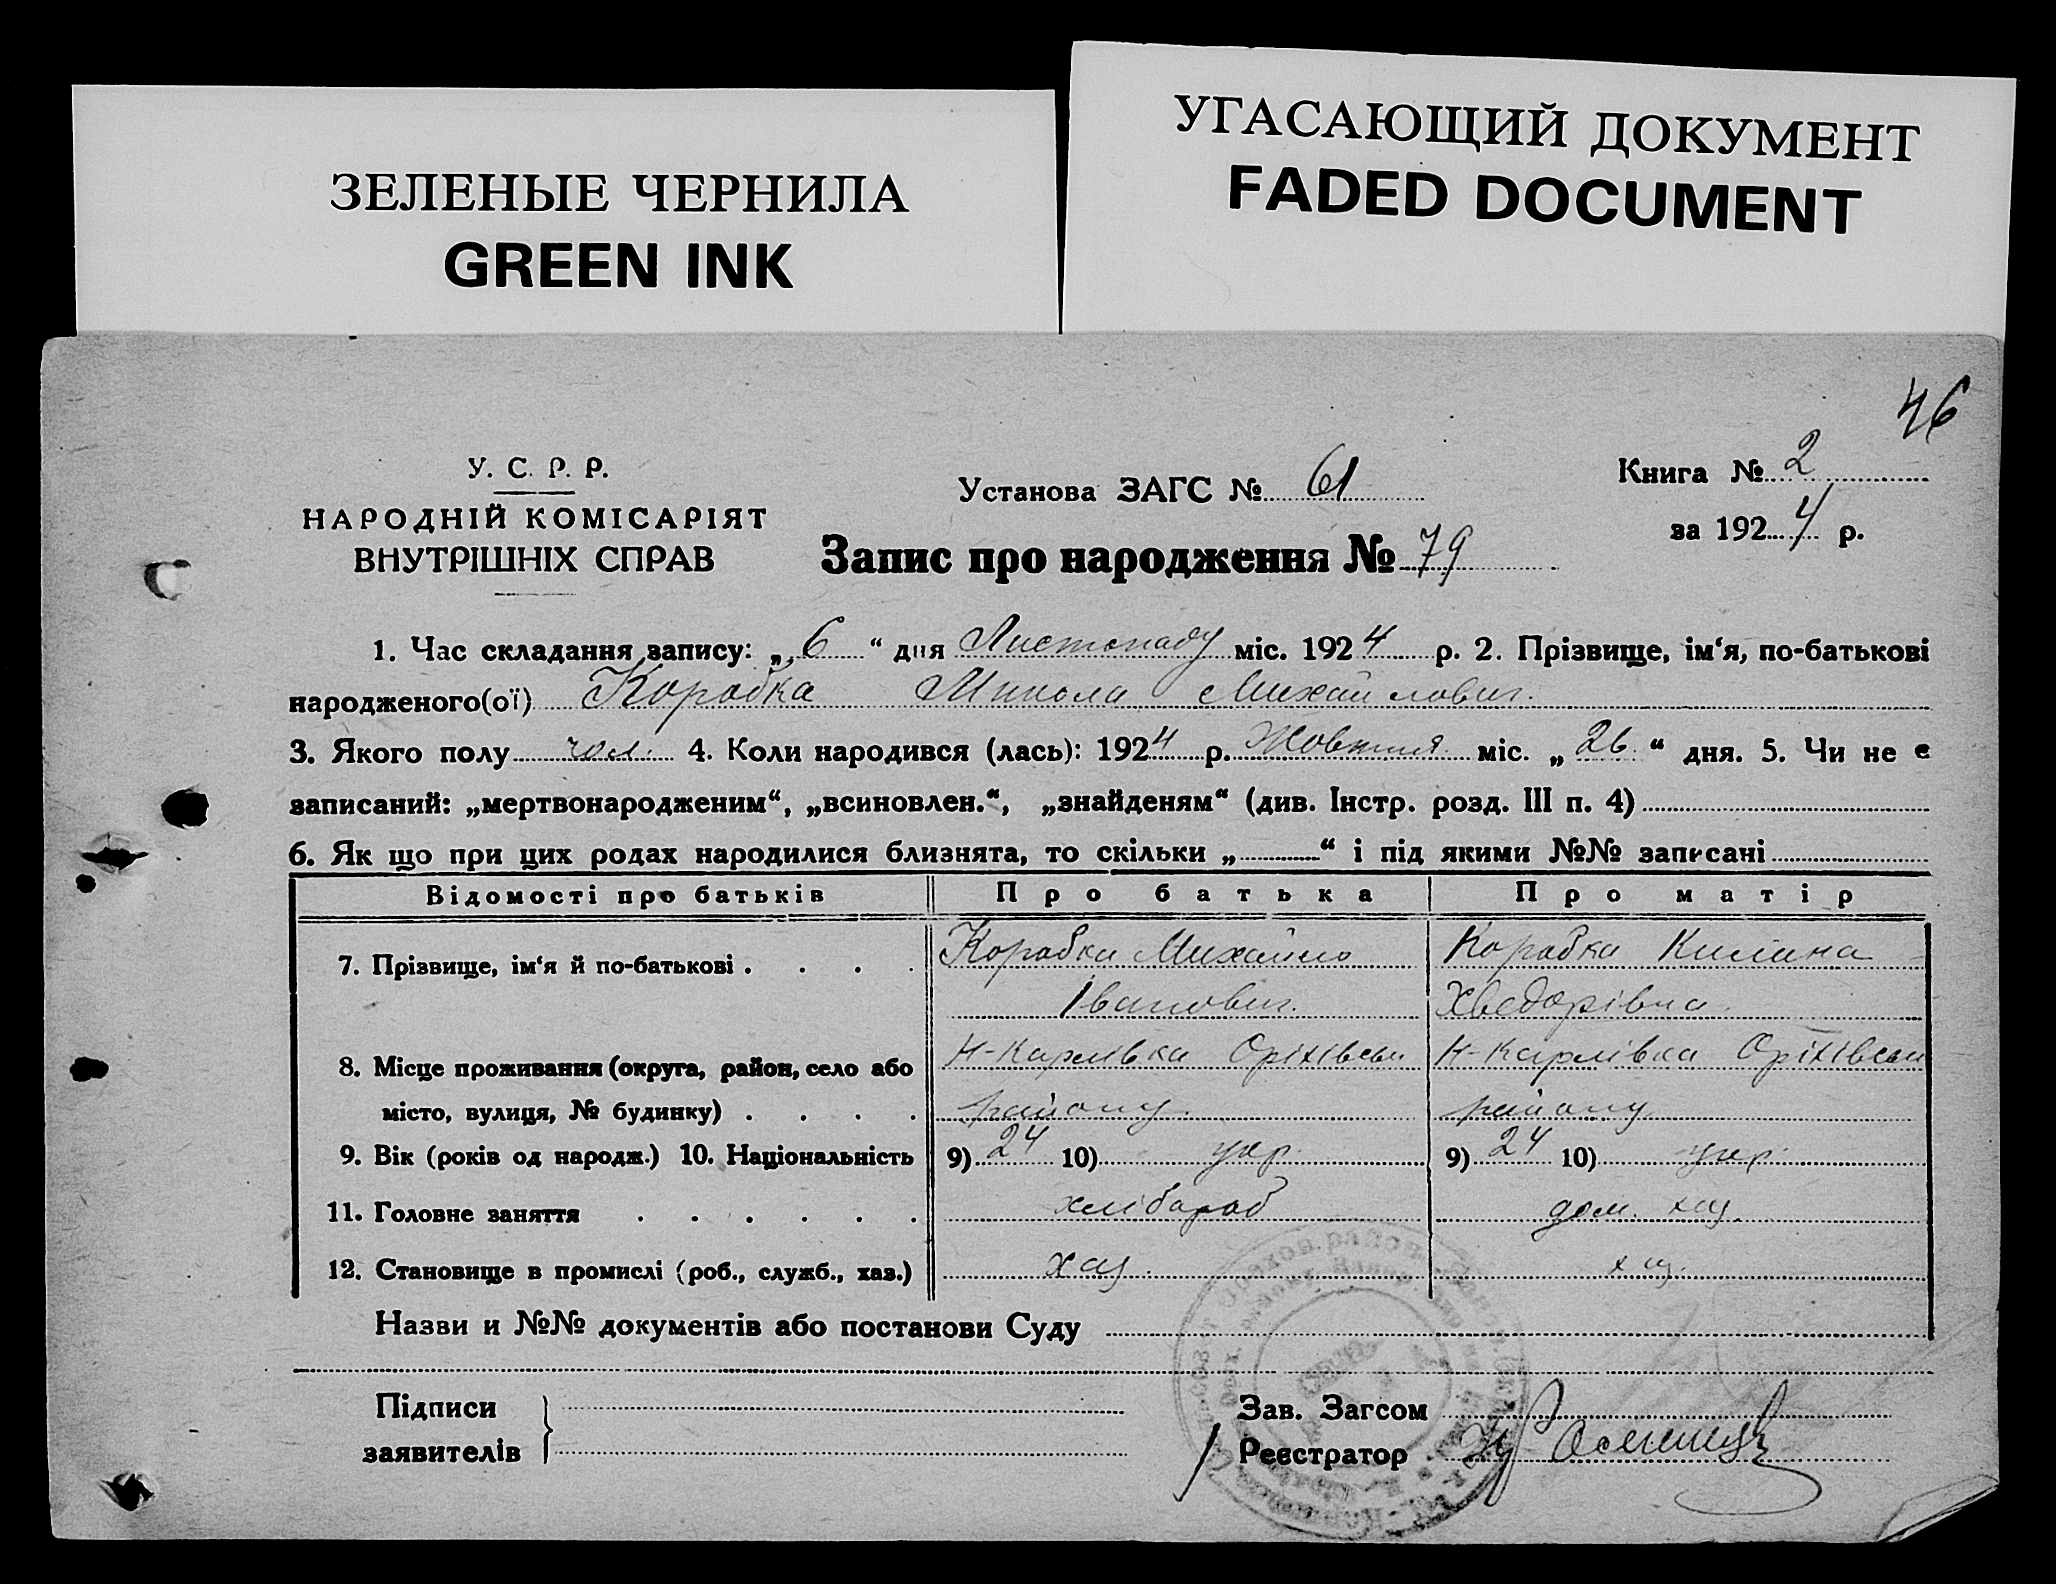 ЗЕЛЕНЫЕ ЧЕРНИЛА
GREEN INK
УГАСАЮЩИЙ ДОКУМЕНТ
FADED DOCUMENT
46
У. С. Р. Р.
НАРОДНІЙ КОМІСАРІЯТ
ВНУТРІШНІХ СПРАВ
Установа ЗАГС № 61
Книга № 2
за 1924 р.
Запис про народження № 79
1. Час складання запису: „6“ дня Листопаду міс. 1924 р. 2. Прізвище, ім‘я, по-батькові
народженого(ої) Коробка Микола Михайлович.
3. Якого полу чол. 4. Коли народився (лась): 1924 р. Жовтня міс. „26“ дня. 5. Чи не є
записаний: „мертвонародженим“, „всиновлен.“, „знайденям“ (див. Інстр. розд. III п. 4)
6. Як що при цих родах народилися близнята, то скільки „ “ і під якими №№ записані
Відомості про батьків Про батька Про матір
7. Прізвище, ім‘я й по-батькові . . . . Коробка Михайло Коробка Килина
Іванович. Хведорівна.
8. Місце проживання (округа, район, село або Н-Карлівка Оріхівськ Н-Карлівка Оріхівськ
місто, вулиця, № будинку) . . . . району. району
9. Вік (років од народж.) 10. Національність 9) 24 10) укр. 9) 24 10) укр.
11. Головне заняття . . . . . . хлібороб дом. хаз.
12. Становище в промислі (роб., служб., хаз.) хаз. хаз.
Назви и №№ документів або постанови Суду
Підписи
заявителів
Зав. Загсом
Реєстратор